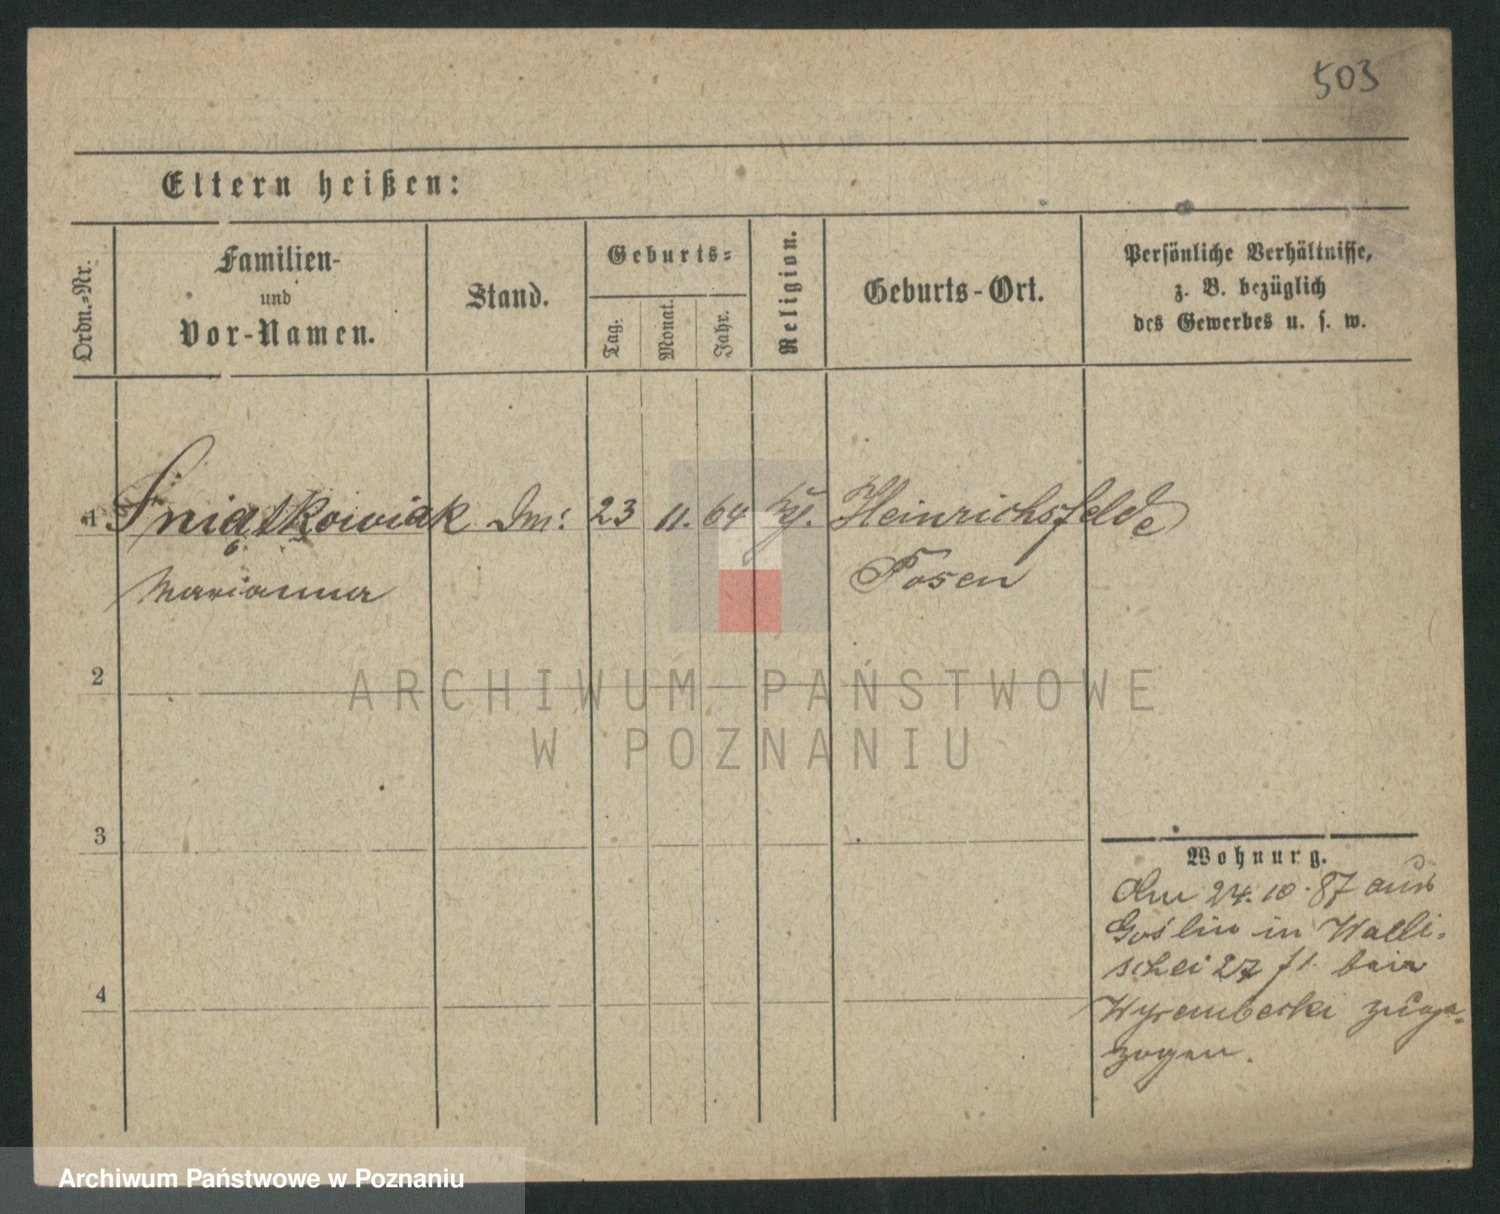 503
Eltern heißen:
Ordn.-Nr.
Familien-
und
Vor-Namen.
Stand.
Geburts-
Tag.
Monat.
Jahr.
Religion.
Geburts-Ort.
Persönliche Verhältnisse,
z. B. bezüglich
des Gewerbes u. s. w.
1 Śniatkowiak 23 11. 64 Heinrichsfelde
Marianna Posen
2
ARCHIWUM PAŃSTWOWE
W POZNANIU
3
Wohnung.
Am 24.10.87 aus
Goślin in Walli-
schei 27 f1. bei
Wyrembecki zuge-
zogen.
4
Archiwum Państwowe w Poznaniu